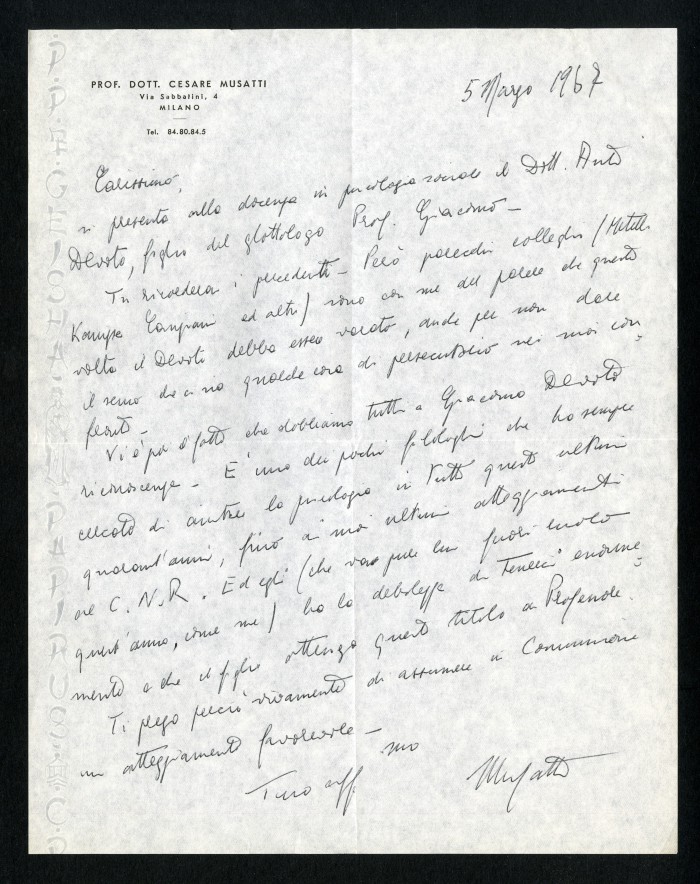 PROF. DOTT. CESARE MUSATTI
Via Sabbatini, 4
MILANO
Tel. 84.80.84.5
5 Marzo 1967
Carissimo,
si presenta alla docenza in psicologia sociale il Dott. Anto
Devoto, figlio del glottologo Prof. Giacomo –
Tu ricorderai i precedenti – Però parecchi colleghi (Metelli
Kanizsa Canziani ed altri) sono con me del parere che questa
volta il Devoto debba essere varato, anche per non dare
il senso che ci sia qualche cosa di persecutorio nei suoi con-
fronti –
Vi è poi il fatto che dobbiamo tutti a Giacomo Devoto
riconoscenza – E' uno dei pochi filologhi che ha sempre
cercato di aiutare la psicologia in tutti questi ultimi
quarant'anni, fino ai suoi ultimi atteggiamenti
al C.N.R. Ed egli (che va pure lui fuori ruolo
quest'anno, come me) ha la debolezza di tenerci enorme-
mente a che il figlio ottenga questo titolo
Ti prego perciò vivamente di assumere in Commissione
un atteggiamento favorevole –
Tuo aff.mo
Musatti